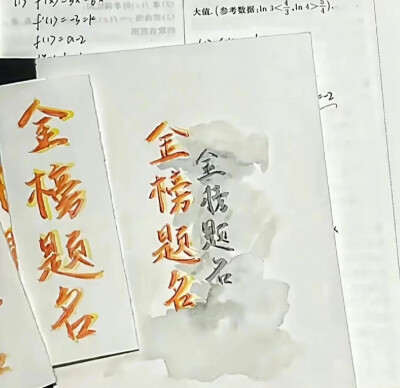 f'(1)=-3=k
f(1)=a-2
大值.(参考数据:ln 3<4/3,ln 4>5/4).
=-2
金榜题名
金榜题名
金榜题名